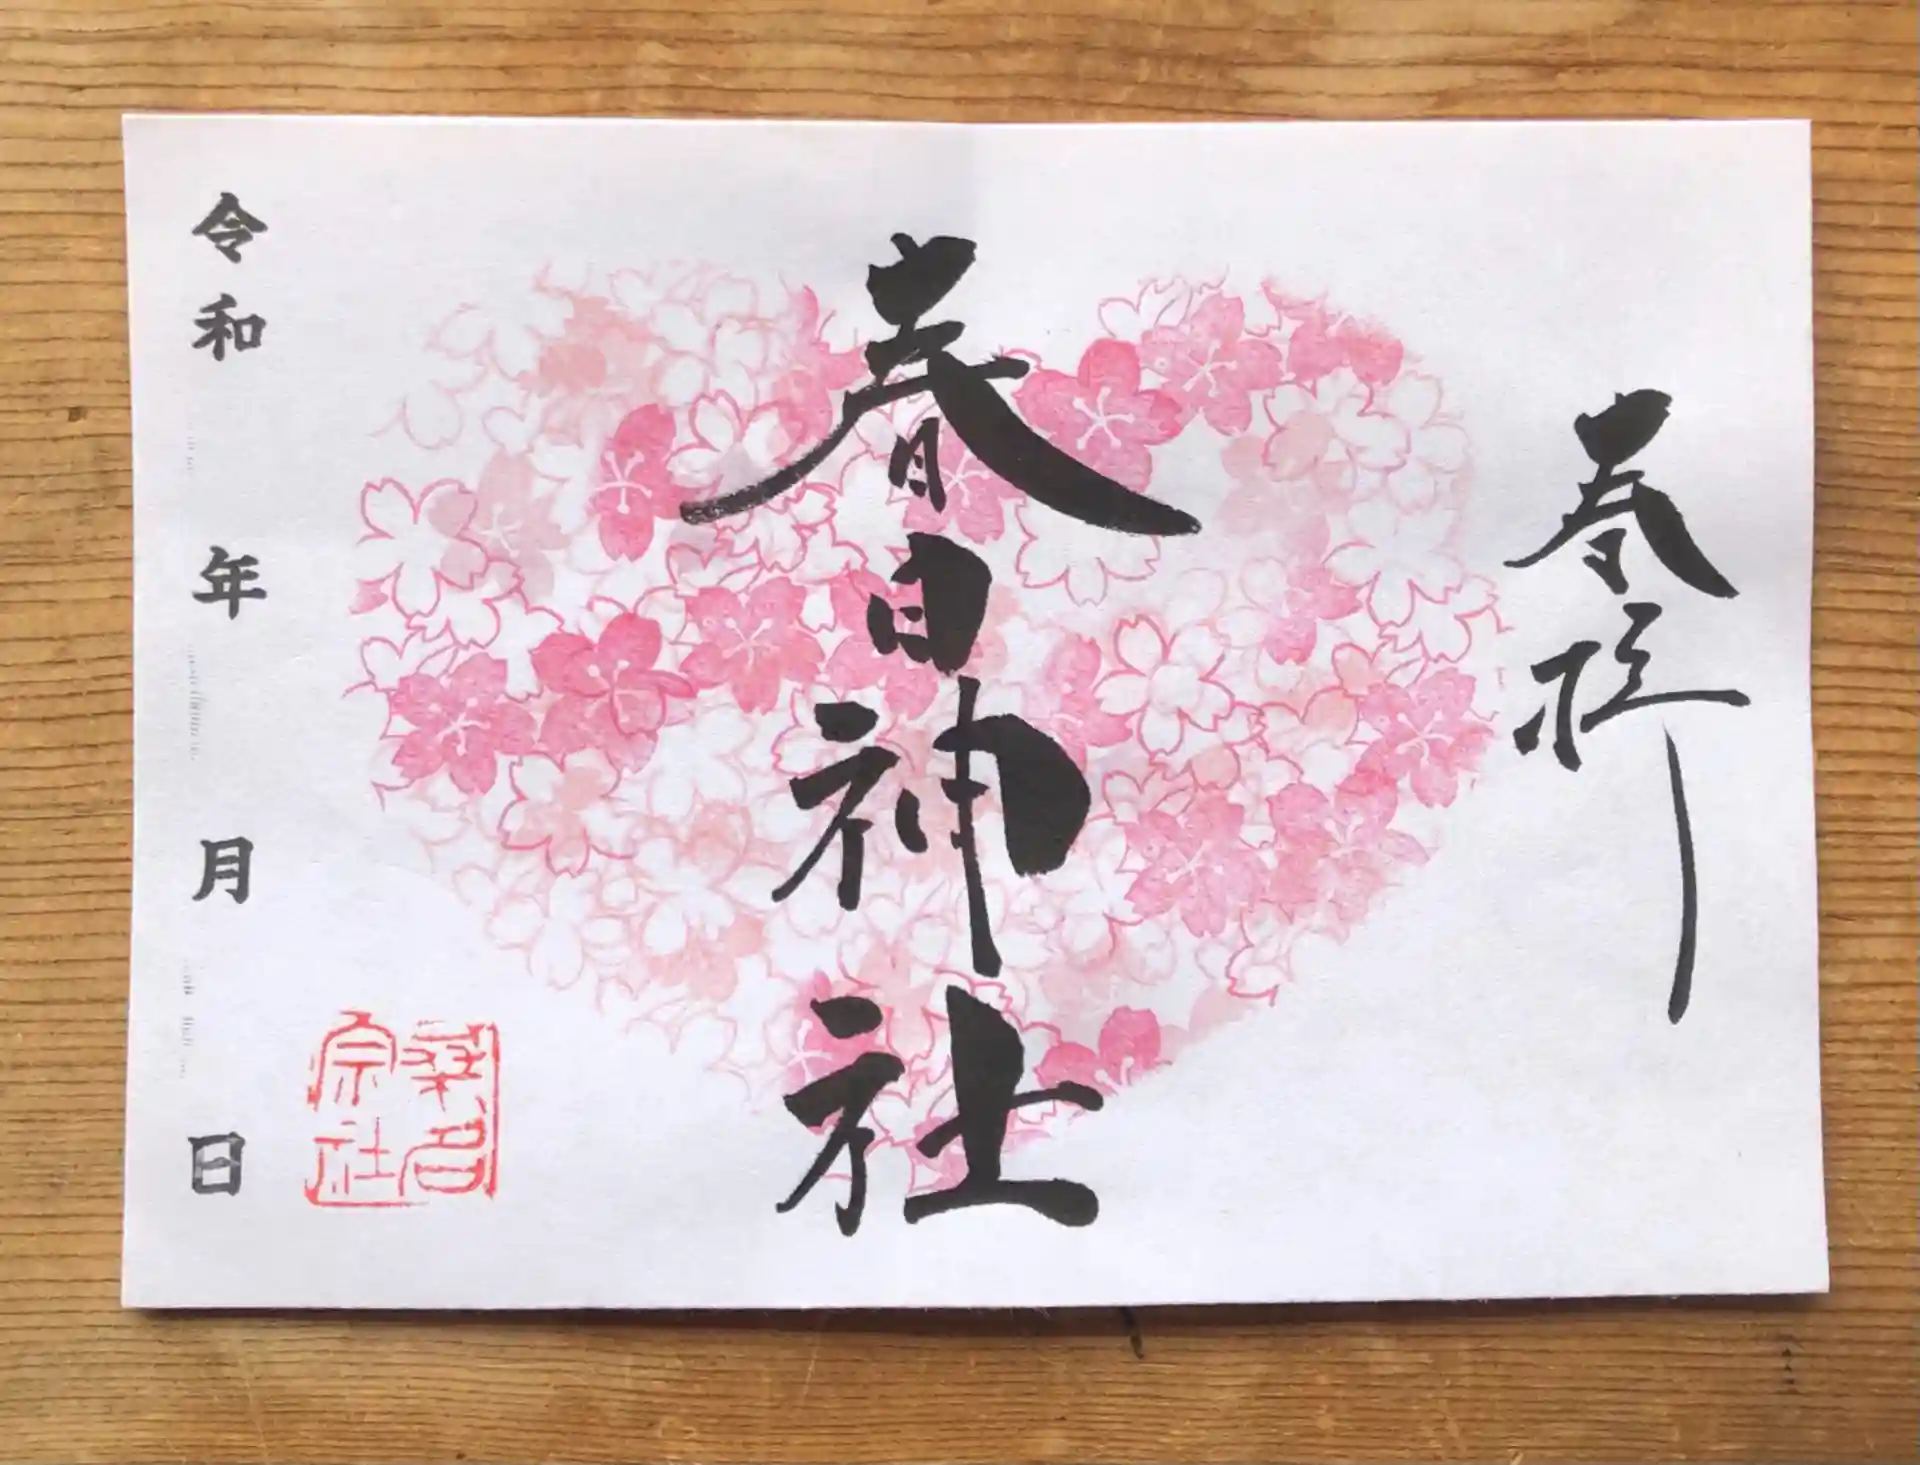 奉拝
春日神社
令和 年 月 日
桑名
宗社